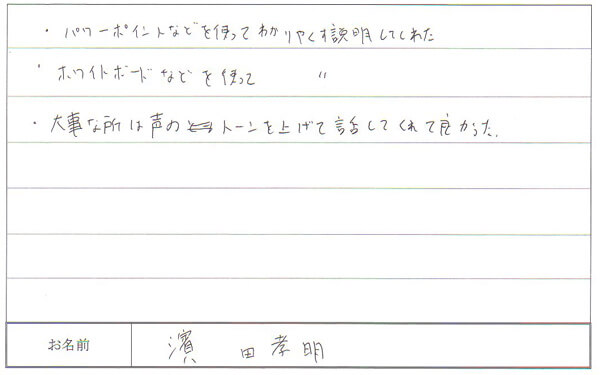 ・パワーポイントなどを使ってわかりやすく説明してくれた
・ホワイトボードなどを使って 〃
・大事な所は声のトーンを上げて話してくれて良かった。
お名前 濱田孝明